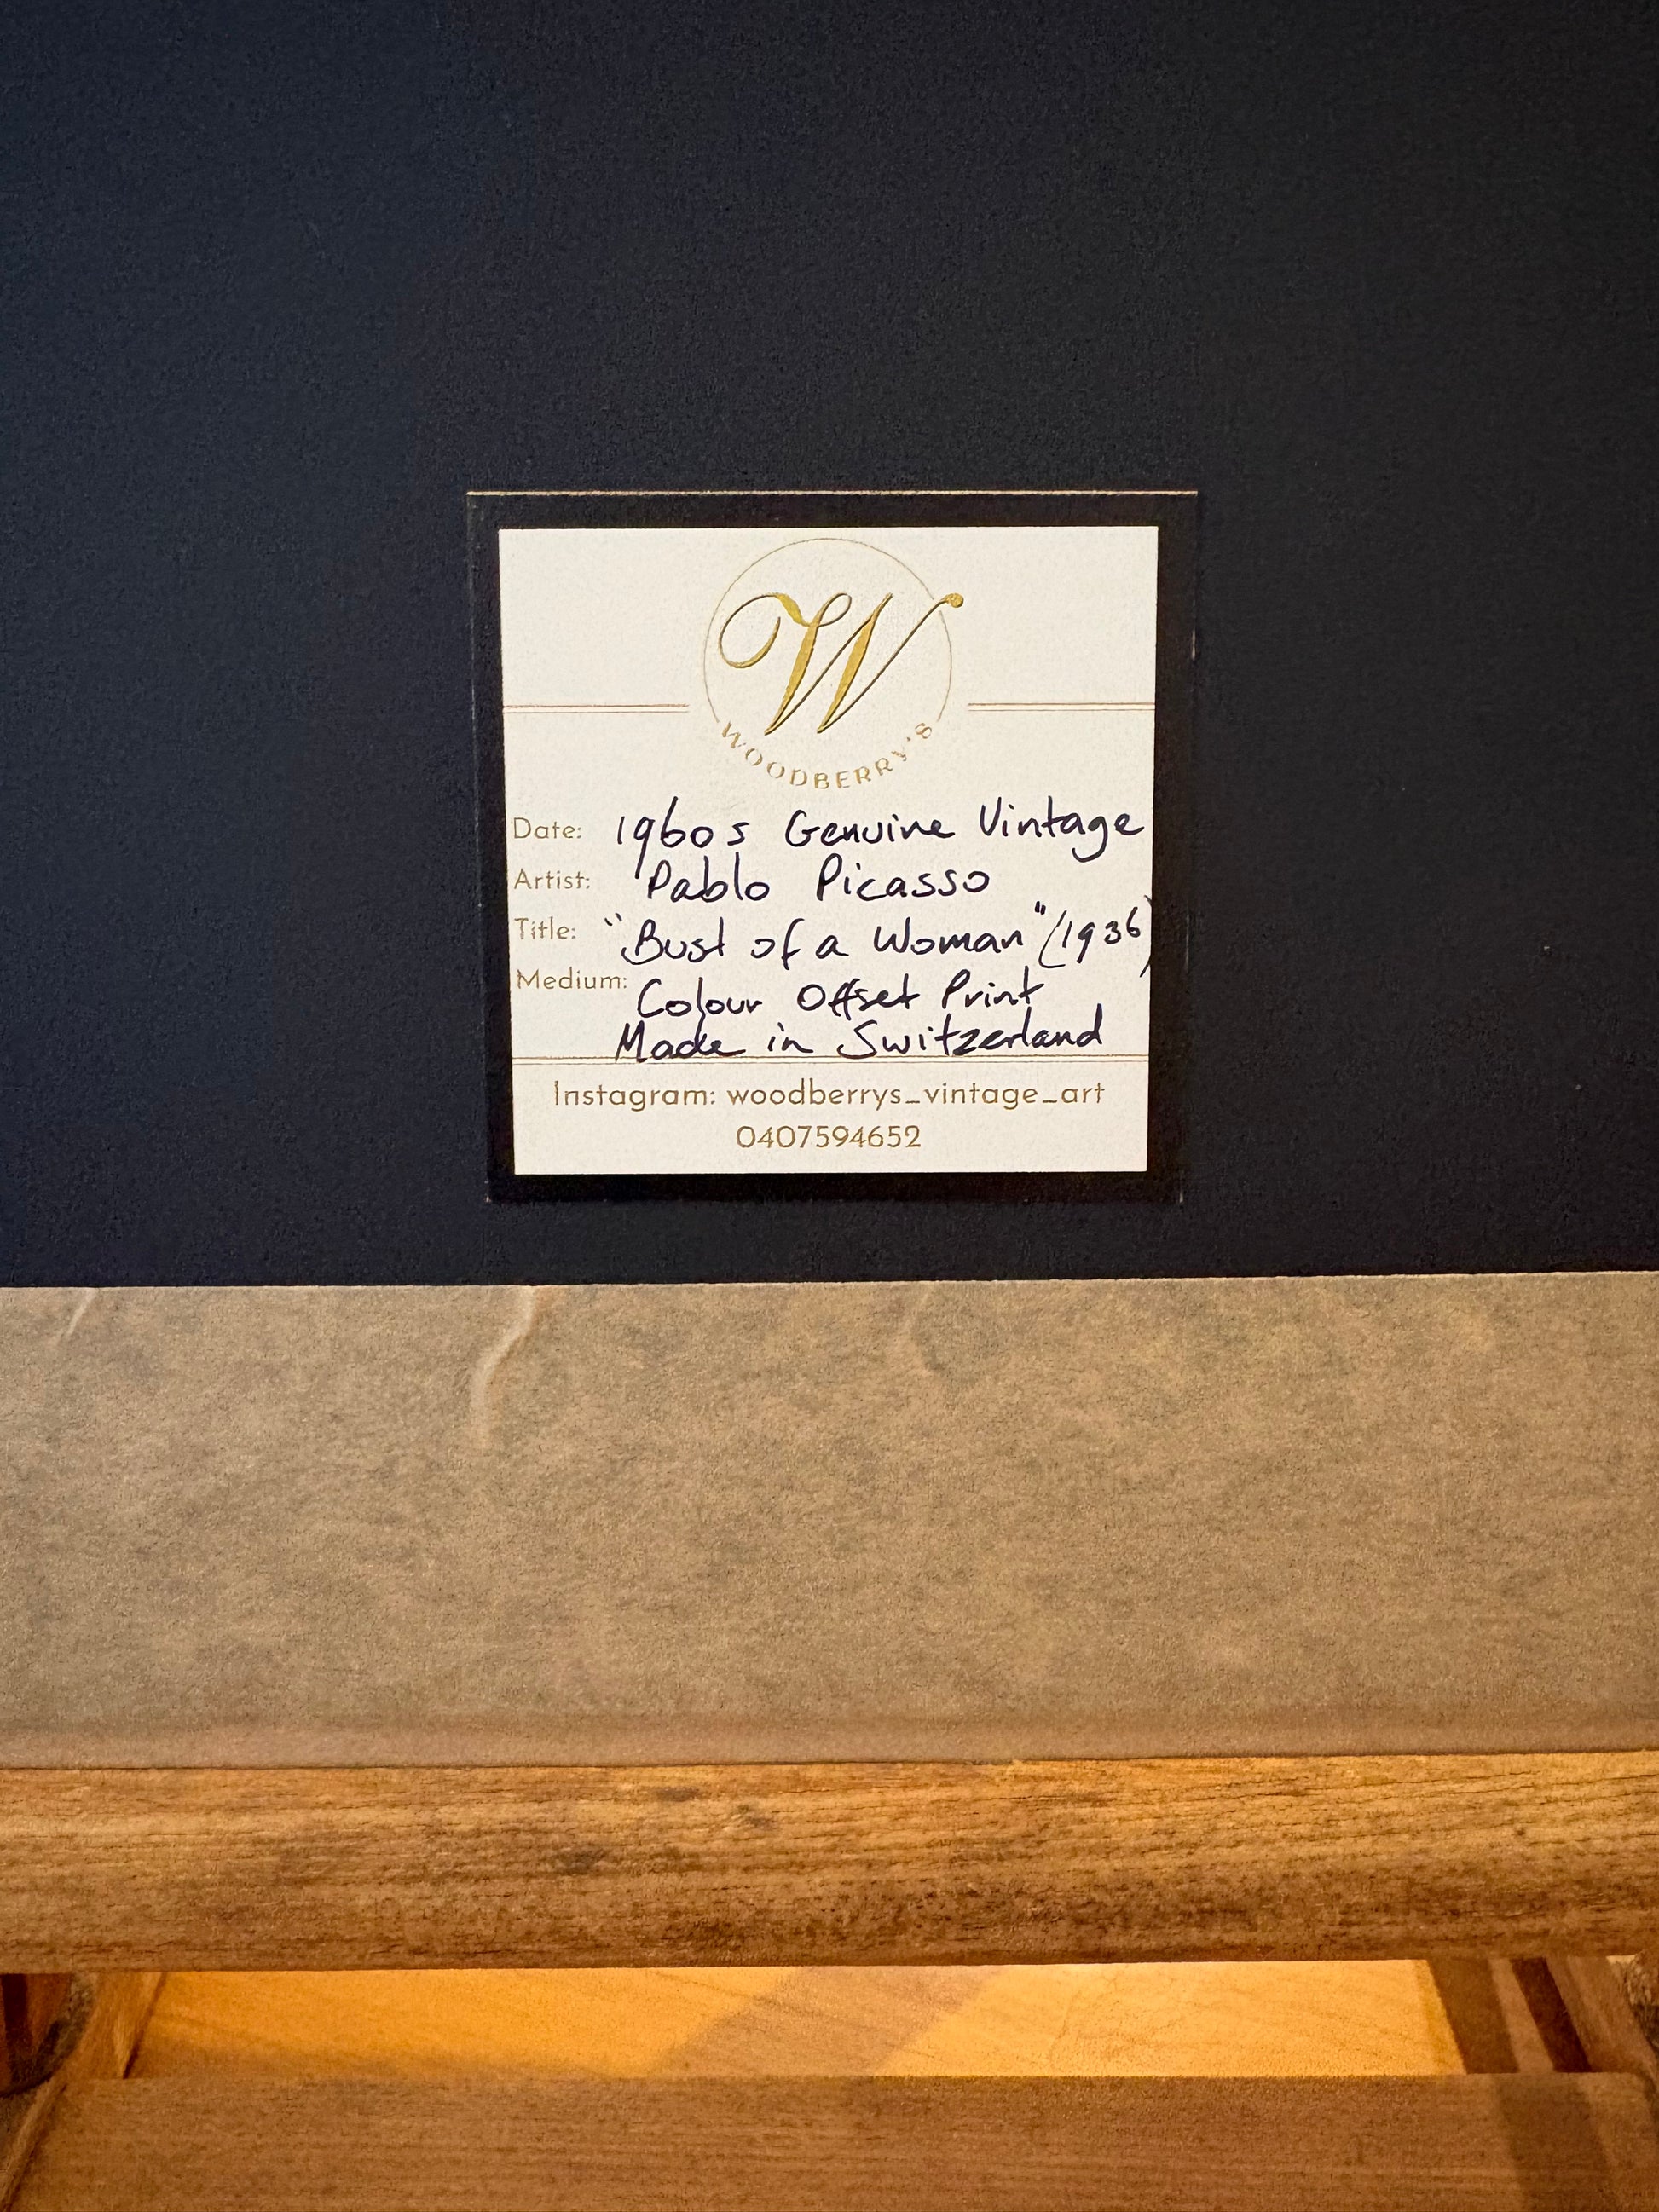 W
WOODBERRY'S
Date: 1960s Genuine Vintage
Artist: Pablo Picasso
Title: "Bust of a Woman" (1936)
Medium: Colour Offset Print
Made in Switzerland
Instagram: woodberrys_vintage_art
0407594652